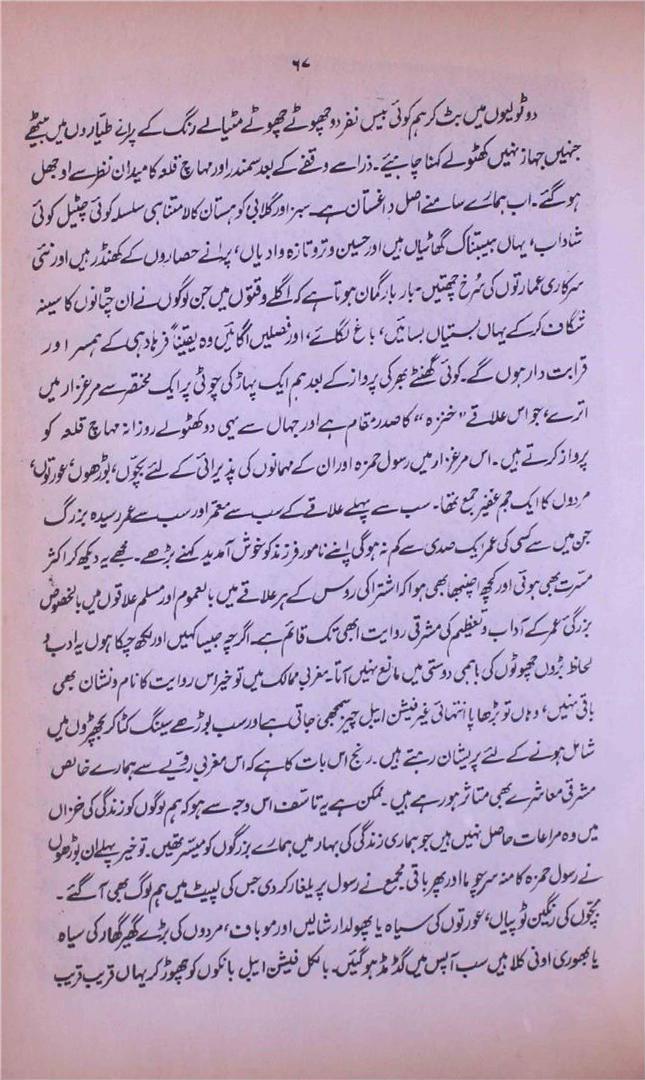 ۶۷
دو ٹولیوں میں بٹ کر ہم کوئی بیس نفر دو چھوٹے چھوٹے مٹیالے رنگ کے پرانے طیاروں میں بیٹھے
جنہیں جہاز نہیں کھٹولے کہنا چاہئیے۔ ذرا سے وقفے کے بعد سمندر اور مہاچ قلعہ کا میدان نظر سے اوجھل
ہو گئے۔ اب ہمارے سامنے اصل داغستان ہے۔ سبز اور گلابی کوہستان کا لامتناہی سلسلہ کوئی چٹیل کوئی
شاداب، یہاں ہیبتناک گھاٹیاں ہیں اور حسین و تر و تازہ وادیاں، پرانے حصاروں کے کھنڈر ہیں اور نئی
سرکاری عمارتوں کی سُرخ چھتیں۔ بار بار گمان ہوتا ہے کہ اگلے وقتوں میں جن لوگوں نے ان چٹانوں کا سینہ
شگاف کر کے یہاں بستیاں بسائیں، باغ لگائے، اور فصلیں اگائیں وہ یقیناً فرہاد ہی کے ہمسر اور
قرابت دار ہوں گے۔ کوئی گھنٹے بھر کی پرواز کے بعد ہم ایک پہاڑ کی چوٹی پر ایک مختصر سے مرغزار میں
اترے، جو اس علاقے "خنزہ" کا صدر مقام ہے اور جہاں سے یہی دو کھٹولے روزانہ مہاچ قلعہ کو
پرواز کرتے ہیں۔ اس مرغزار میں رسول حمزہ اور ان کے مہمانوں کی پذیرائی کے لئے بچوں، بوڑھوں، عورتوں،
مردوں کا ایک جم غفیر جمع تھا۔ سب سے پہلے علاقے کے سب سے معمر اور سب سے عمر رسیدہ بزرگ
جن میں سے کسی کی عمر ایک صدی سے کم نہ ہوگی اپنے نامور فرزند کو خوش آمدید کہنے بڑھے۔ مجھے یہ دیکھ کر اکثر
مسرت بھی ہوئی اور کچھ اچنبھا بھی ہوا کہ اشتراکی روس کے ہر علاقے میں بالعموم اور مسلم علاقوں میں بالخصوص
بزرگیِ عمر کے آداب و تعظیم کی مشرقی روایت ابھی تک قائم ہے۔ اگرچہ جیسا کہیں اور لکھ چکا ہوں یہ ادب و
لحاظ بڑوں چھوٹوں کی باہمی دوستی میں مانع نہیں آتا۔ مغربی ممالک میں تو خیر اس روایت کا نام و نشان بھی
باقی نہیں، وہاں تو بڑھاپا انتہائی غیر فیشن ایبل چیز سمجھی جاتی ہے اور سب بوڑھے سینگ کٹا کر بچھڑوں میں
شامل ہونے کے لئے پریشان رہتے ہیں۔ رنج اس بات کا ہے کہ اس مغربی رویے سے ہمارے خالص
مشرقی معاشرے بھی متاثر ہو رہے ہیں۔ ممکن ہے یہ تاسف اس وجہ سے ہو کہ ہم لوگوں کو زندگی کی خزاں
میں وہ مراعات حاصل نہیں ہیں جو ہماری زندگی کی بہار میں ہمارے بزرگوں کو میسر تھیں۔ تو خیر پہلے ان بوڑھوں
نے رسول حمزہ کا منہ سر چوما اور پھر باقی مجمع نے رسول پر یلغار کر دی جس کی لپیٹ میں ہم لوگ بھی آ گئے۔
بچوں کی رنگین ٹوپیاں، عورتوں کی سیاہ یا پھولدار شالیں اور موباف، مردوں کی بڑے گھیر گھار کی سیاہ
یا بھوری اونی کلاہیں سب آپس میں گڈ مڈ ہو گئیں۔ بالکل فیشن ایبل بانکوں کو چھوڑ کر یہاں قریب قریب